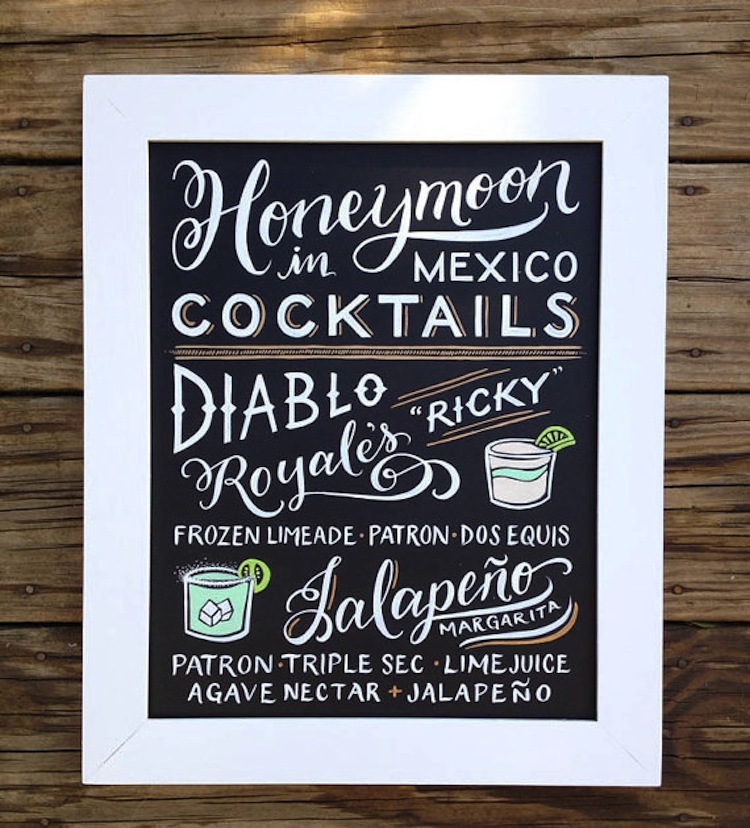 Honeymoon
in MEXICO
COCKTAILS
DIABLO
Royalé's "RICKY"
FROZEN LIMEADE · PATRON · DOS EQUIS
Jalapeño
MARGARITA
PATRON · TRIPLE SEC · LIME JUICE
AGAVE NECTAR + JALAPEÑO